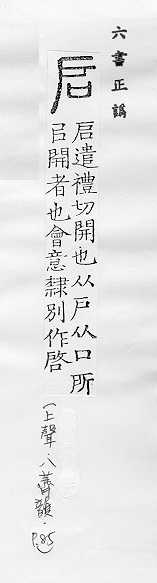 六書正譌
启
启遣禮切開也从戶从口所
㠯開者也會意隸別作啓
(上聲·八薺韻·
P.85)